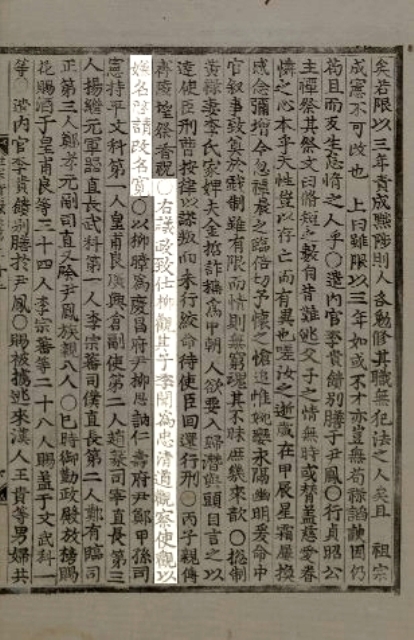 矣若限以三年責成熙陟則人各勉修其職無犯法之人矣且 祖宗
成憲不可改也 上曰雖限以三年如或不才亦豈無苟祿諂諛因仍
苟且而反生怠惰之人乎○遣內官李貴饋別膳于尹鳳○行貞昭公
主禫祭其祭文曰脩短之數自昔難逃父子之情無時或替蓋慈愛眷
憐之心本乎天性豈以存亡而有異也嗟汝之逝歲在甲辰星霜屢換
感念彌增今忽禫晨之臨倍切予懷之愴追惟婉孌永隔幽明爰命中
官叙事致奠於戲制雖有限而情則無窮魂其不昧庶幾來歆○摠制
黃祿妻李氏家婢夫金哲詐稱爲甲朝人欲要入歸潛與頭目言之以
達使臣刑曹按律以謀叛而未行絞命待使臣回還行刑○丙子親傳
齊陵望祭香祝○右議政致仕柳觀其子季聞爲忠清道觀察使觀以
嫌名啓請改名寬○以柳暲爲慶昌府尹柳思訥仁壽府尹鄭甲孫司
憲持平文科第一人皇甫良 興倉副使第二人趙 司宰直長第三
人揚繼元軍器直長武科第一人李宗蕃司僕直長第二人鄭有臨司
正第三人鄭孝元副司直又除尹鳳族親八人○巳時御勤政殿放榜賜
花賜酒于皇甫良等三十四人李宗蕃等二十八人賜蓋于文武科一
等○遣內官李貴饋別膳于尹鳳○賜被擄逃來漢人王貴等男婦共